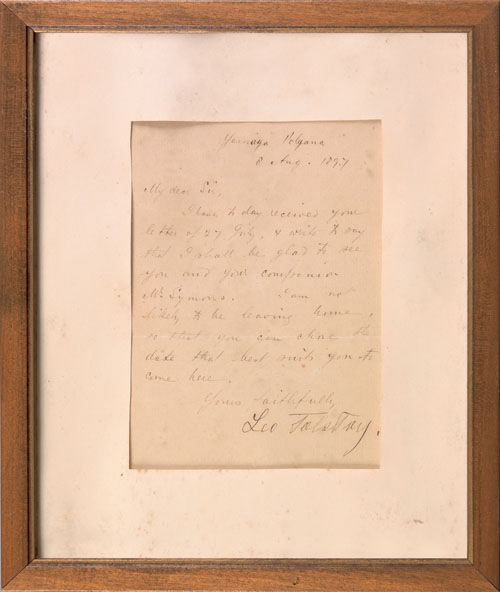 Yasnaya Polyana
8 Aug. 1897
My dear Sir,
I have to day received your
letter of 27 July, & write to say
that I shall be glad to see
you and your companion
Mr Symons. I am not
likely to be leaving home,
so that you can chose the
date that best suits you to
come here.
Yours faithfully
Leo Tolstoy.